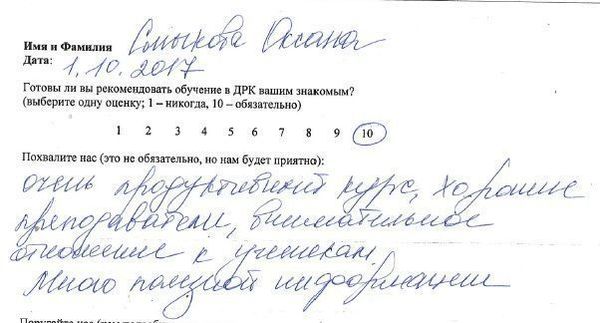 Имя и Фамилия Смыкова Оксана
Дата: 1.10.2017
Готовы ли вы рекомендовать обучение в ДРК вашим знакомым?
(выберите одну оценку; 1 – никогда, 10 – обязательно)
1 2 3 4 5 6 7 8 9 10
Похвалите нас (это не обязательно, но нам будет приятно):
очень продуктивный курс, хорошие
преподаватели, внимательное
отношение к ученикам,
Много полезной информации